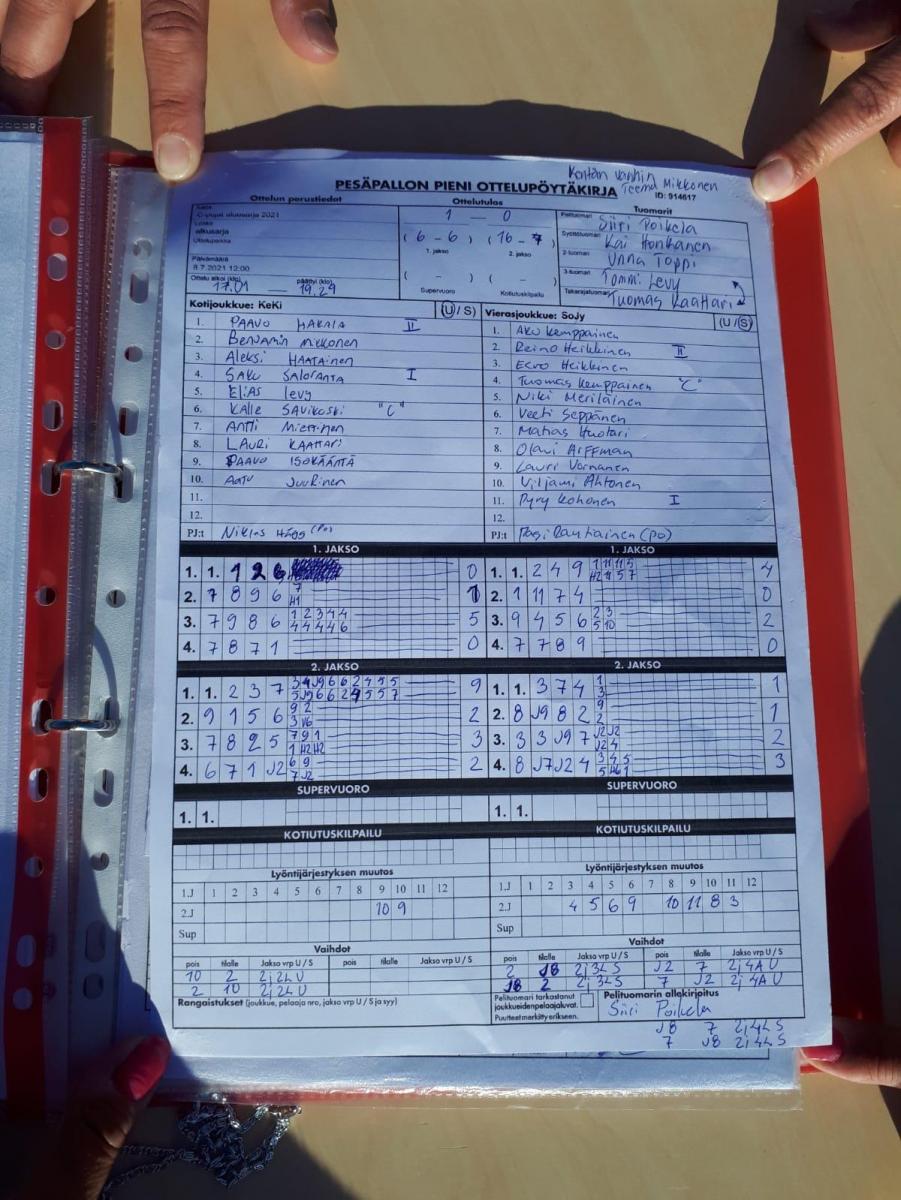 Kentän vanhin
PESÄPALLON PIENI OTTELUPÖYTÄKIRJA Teemu Mikkonen
ID: 914617
Ottelun perustiedot Ottelutulos Tuomarit
C-pojat aluesarja 2021 1 — 0 Pelituomari Siiri Poikela
alkusarja (6 – 6) (16 – 7) Syöttötuomari Kai Honkanen
Ottelupaikka 1. jakso 2. jakso 2-tuomari Unna Toppi
Päivämäärä
8.7.2021 12:00 ( – ) ( – ) 3-tuomari Tommi Levy
Ottelu alkoi (klo) 17.01 — päättyi (klo) 19.29 Supervuoro Kotiutuskilpailu Takarajatuomari Tuomas Kaattari
Kotijoukkue: KeKi (U / S) Vierasjoukkue: SoJy (U / S)
1. PAAVO HAKALA II 1. Aku Kemppainen
2. Benjamin Mikkonen 2. Reino Heikkinen II
3. Aleksi HAATAINEN 3. Eero Heikkinen
4. SAKU SALORANTA I 4. Tuomas Kemppainen "C"
5. ELIAS Levy 5. Niki Meriläinen
6. KALLE SAVIKOSKI "C" 6. Veeti Seppänen
7. Antti Miettinen 7. Matias Huotari
8. LAURI KAATTARI 8. Olavi Arffman
9. PAAVO ISOKÄÄNTÄ 9. Lauri Vornanen
10. Aatu Juurinen 10. Viljami Ahtonen
11. 11. Pyry Kohonen I
12. 12.
PJ:t Niklas Hägg (PO) PJ:t Pasi Rautiainen (PO)
1. JAKSO 1. JAKSO
1. 1. 1 2 6 0 1. 1. 2 4 9 4
2. 7 8 9 6 7 1 2. 1 11 7 4 0
H1
3. 7 9 8 6 1 2 3 4 4 5 3. 9 4 5 6 2 3 2
4 4 4 4 6 5 10
4. 7 8 7 1 0 4. 7 7 8 9 0
2. JAKSO 2. JAKSO
1. 1. 2 3 7 9 1. 1. 3 7 4 1 1
3
2. 9 1 5 6 9 2 2 2. 8 J9 8 2 9 1
3 V6 2
3. 7 8 2 5 7 9 1 3 3. 3 3 J9 7 J2 J2 2
1 H2 H2 J2 4
4. 6 7 1 J2 6 9 2 4. 8 J7 J2 4 3 4 5 3
7 J2 5 H6 1
SUPERVUORO SUPERVUORO
1. 1. 1. 1.
KOTIUTUSKILPAILU KOTIUTUSKILPAILU
Lyöntijärjestyksen muutos Lyöntijärjestyksen muutos
1.J 1 2 3 4 5 6 7 8 9 10 11 12 1.J 1 2 3 4 5 6 7 8 9 10 11 12
2.J 10 9 2.J 4 5 6 9 10 11 8 3
Sup Sup
Vaihdot Vaihdot
pois tilalle Jakso vrp U / S pois tilalle Jakso vrp U / S pois tilalle Jakso vrp U / S pois tilalle Jakso vrp U / S
10 2 2j 2L U 2 J8 2j 3L S J2 7 2j 4A U
2 10 2j 2L U J8 2 2j 3L S 7 J2 2j 4A U
Rangaistukset (joukkue, pelaaja nro, jakso vrp U / S ja syy) Pelituomari tarkastanut joukkueiden pelaajaluvat. Pelituomarin allekirjoitus
Puutteet merkitty erikseen. Siiri Poikela
J8 7 2j 4L S
7 J8 2j 4L S